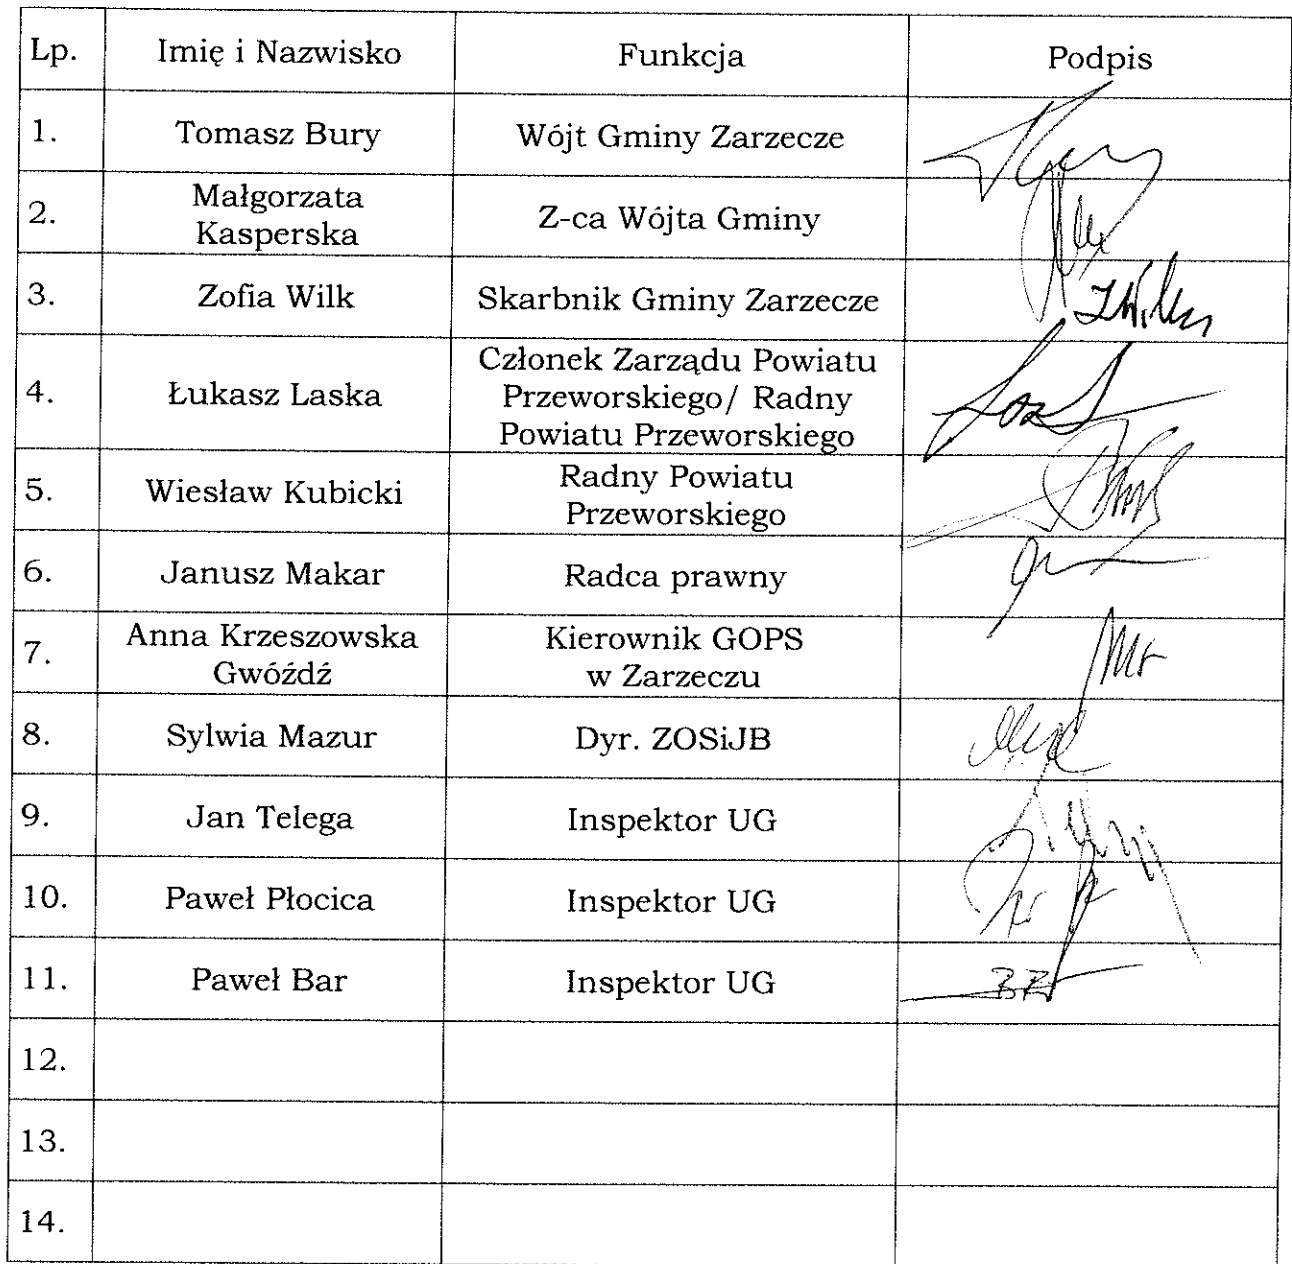 Lp. Imię i Nazwisko Funkcja Podpis
1. Tomasz Bury Wójt Gminy Zarzecze
2. Małgorzata
Kasperska Z-ca Wójta Gminy
3. Zofia Wilk Skarbnik Gminy Zarzecze
4. Łukasz Laska Członek Zarządu Powiatu
Przeworskiego/ Radny
Powiatu Przeworskiego
5. Wiesław Kubicki Radny Powiatu
Przeworskiego
6. Janusz Makar Radca prawny
7. Anna Krzeszowska
Gwóźdź Kierownik GOPS
w Zarzeczu
8. Sylwia Mazur Dyr. ZOSiJB
9. Jan Telega Inspektor UG
10. Paweł Płocica Inspektor UG
11. Paweł Bar Inspektor UG
12.
13.
14.